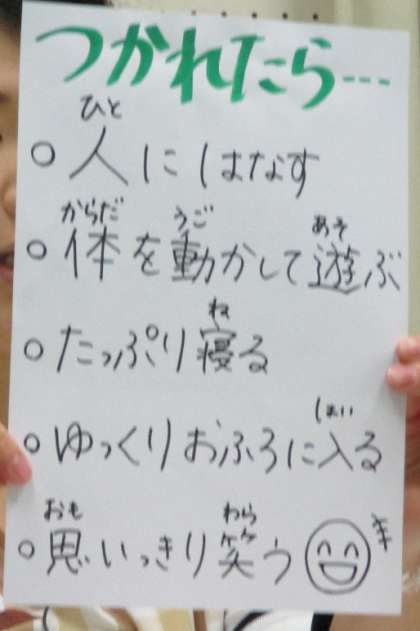 つかれたら…
ひと
○人にはなす
からだ うご あそ
○体を動かして遊ぶ
ね
○たっぷり寝る
はい
○ゆっくりおふろに入る
おも わら
○思いっきり笑う